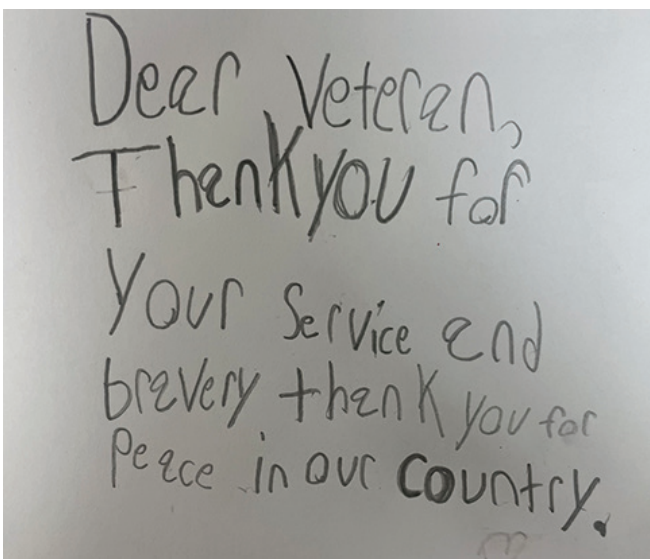 Dear Veteran,
Thank you for
Your Service and
bravery thank you for
Peace in our country.